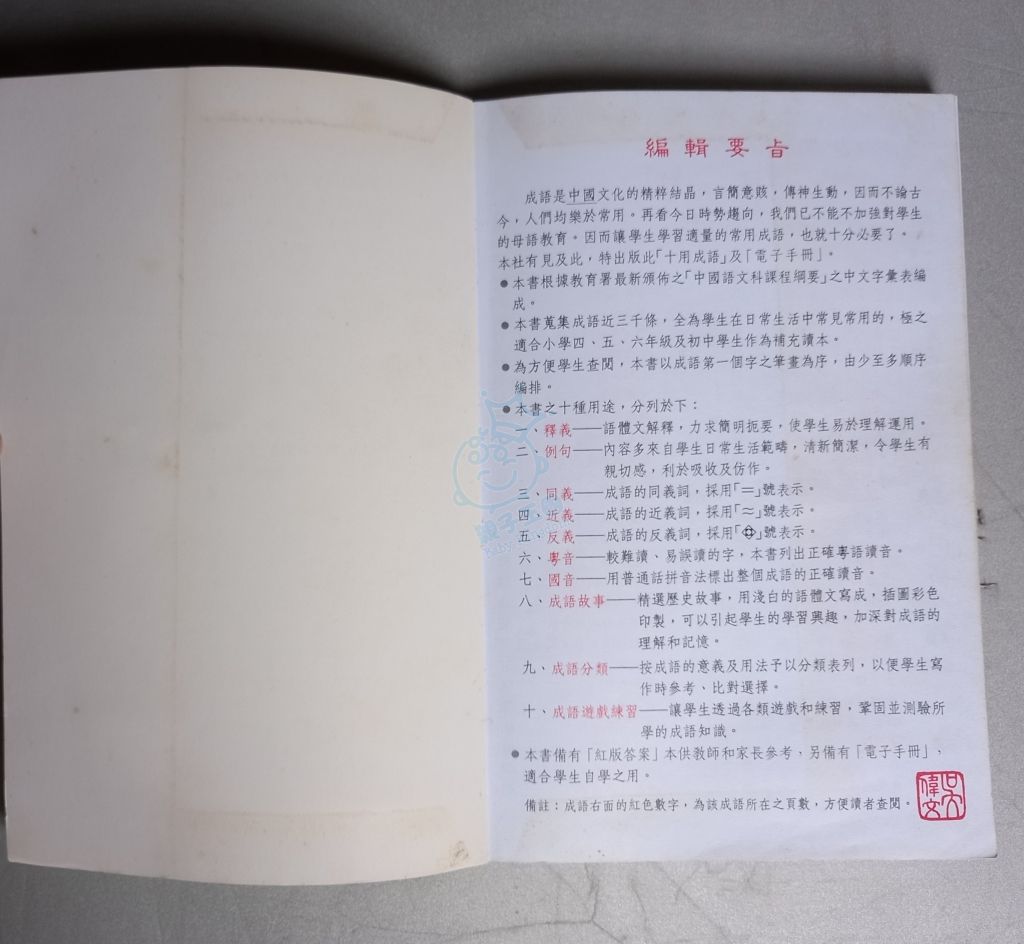 編輯要旨
成語是中國文化的精粹結晶，言簡意賅，傳神生動，因而不論古
今，人們均樂於常用。再看今日時勢趨向，我們已不能不加強對學生
的母語教育。因而讓學生學習適量的常用成語，也就十分必要了。
本社有見及此，特出版此「十用成語」及「電子手冊」。
●本書根據教育署最新頒佈之「中國語文科課程綱要」之中文字彙表編
成。
●本書蒐集成語近三千條，全為學生在日常生活中常見常用的，極之
適合小學四、五、六年級及初中學生作為補充讀本。
●為方便學生查閱，本書以成語第一個字之筆畫為序，由少至多順序
編排。
●本書之十種用途，分列於下：
一、釋義——語體文解釋，力求簡明扼要，使學生易於理解運用。
二、例句——內容多來自學生日常生活範疇，清新簡潔，令學生有
親切感，利於吸收及仿作。
三、同義——成語的同義詞，採用「＝」號表示。
四、近義——成語的近義詞，採用「≈」號表示。
五、反義——成語的反義詞，採用「」號表示。
六、粵音——較難讀、易誤讀的字，本書列出正確粵語讀音。
七、國音——用普通話拼音法標出整個成語的正確讀音。
八、成語故事——精選歷史故事，用淺白的語體文寫成，插圖彩色
印製，可以引起學生的學習興趣，加深對成語的
理解和記憶。
九、成語分類——按成語的意義及用法予以分類表列，以便學生寫
作時參考、比對選擇。
十、成語遊戲練習——讓學生透過各類遊戲和練習，鞏固並測驗所
學的成語知識。
●本書備有「紅版答案」本供教師和家長參考、另備有「電子手冊」，
適合學生自學之用。
備註：成語右面的紅色數字，為該成語所在之頁數，方便讀者查閱。